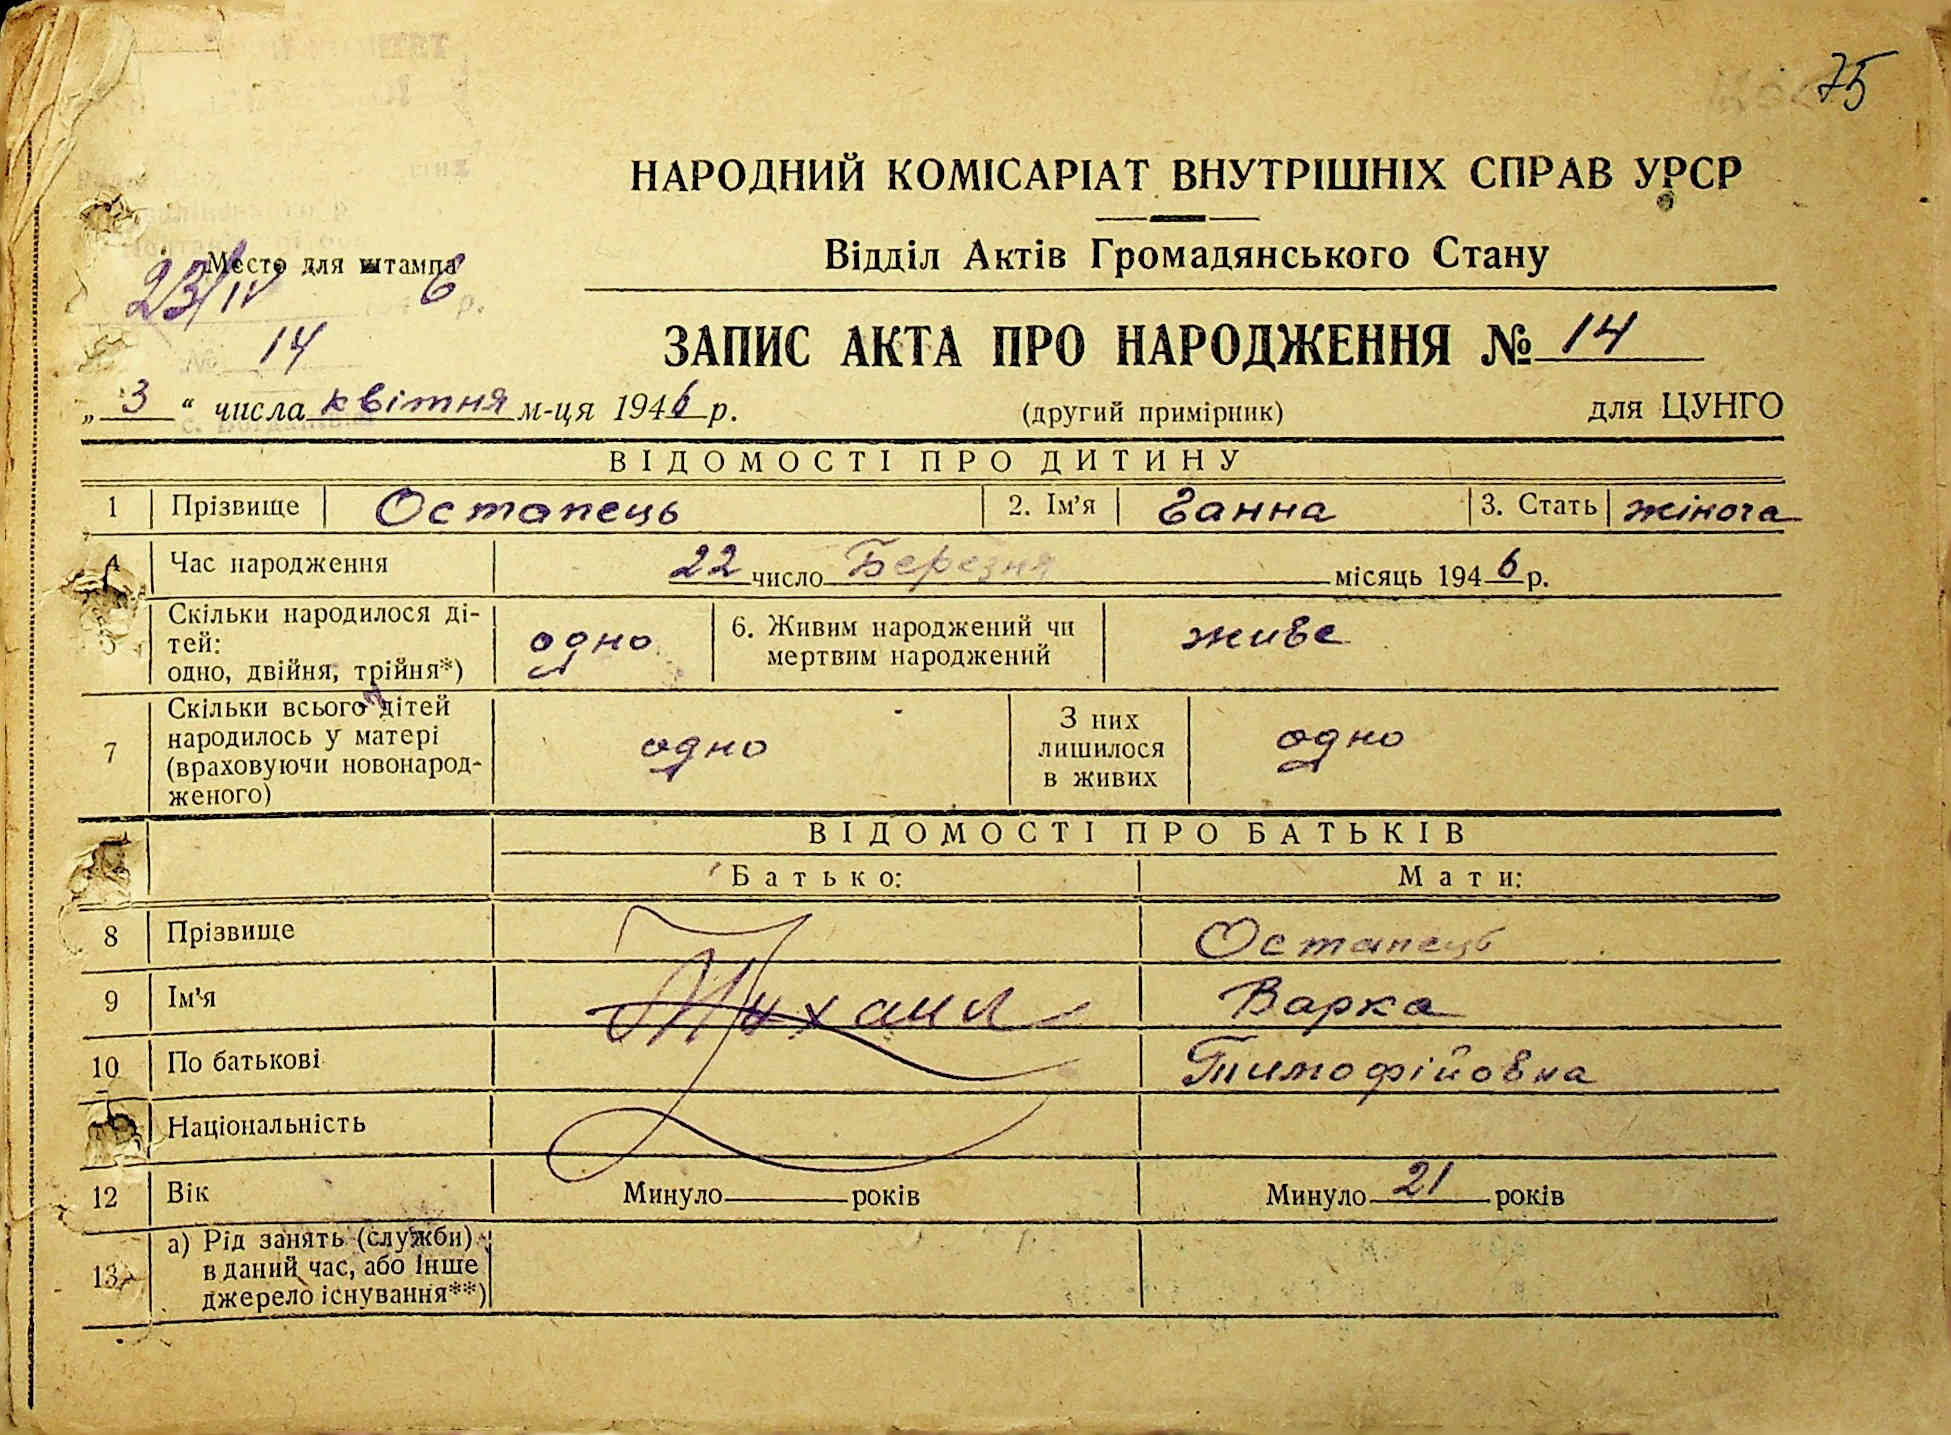 75
НАРОДНИЙ КОМІСАРІАТ ВНУТРІШНІХ СПРАВ УРСР
Відділ Актів Громадянського Стану
Место для штампа
23/IV 6
14
ЗАПИС АКТА ПРО НАРОДЖЕННЯ № 14
„ 3 “ числа квітня м-ця 1946 р. (другий примірник) для ЦУНГО
ВІДОМОСТІ ПРО ДИТИНУ
1 Прізвище Остапець 2. Ім'я Ганна 3. Стать жіноча
4 Час народження 22 число Березня місяць 1946 р.
5 Скільки народилося ді-
тей:
одно, двійня, трійня*) одно 6. Живим народжений чи
мертвим народжений живе
7 Скільки всього дітей
народилось у матері
(враховуючи новонарод-
женого) одно З них
лишилося
в живих одно
ВІДОМОСТІ ПРО БАТЬКІВ
Батько: Мати:
8 Прізвище Остапець
9 Ім'я Михаил Варка
10 По батькові Тимофійовна
Національність
12 Вік Минуло років Минуло 21 років
13 а) Рід занять (служби)
в даний час, або інше
джерело існування**)